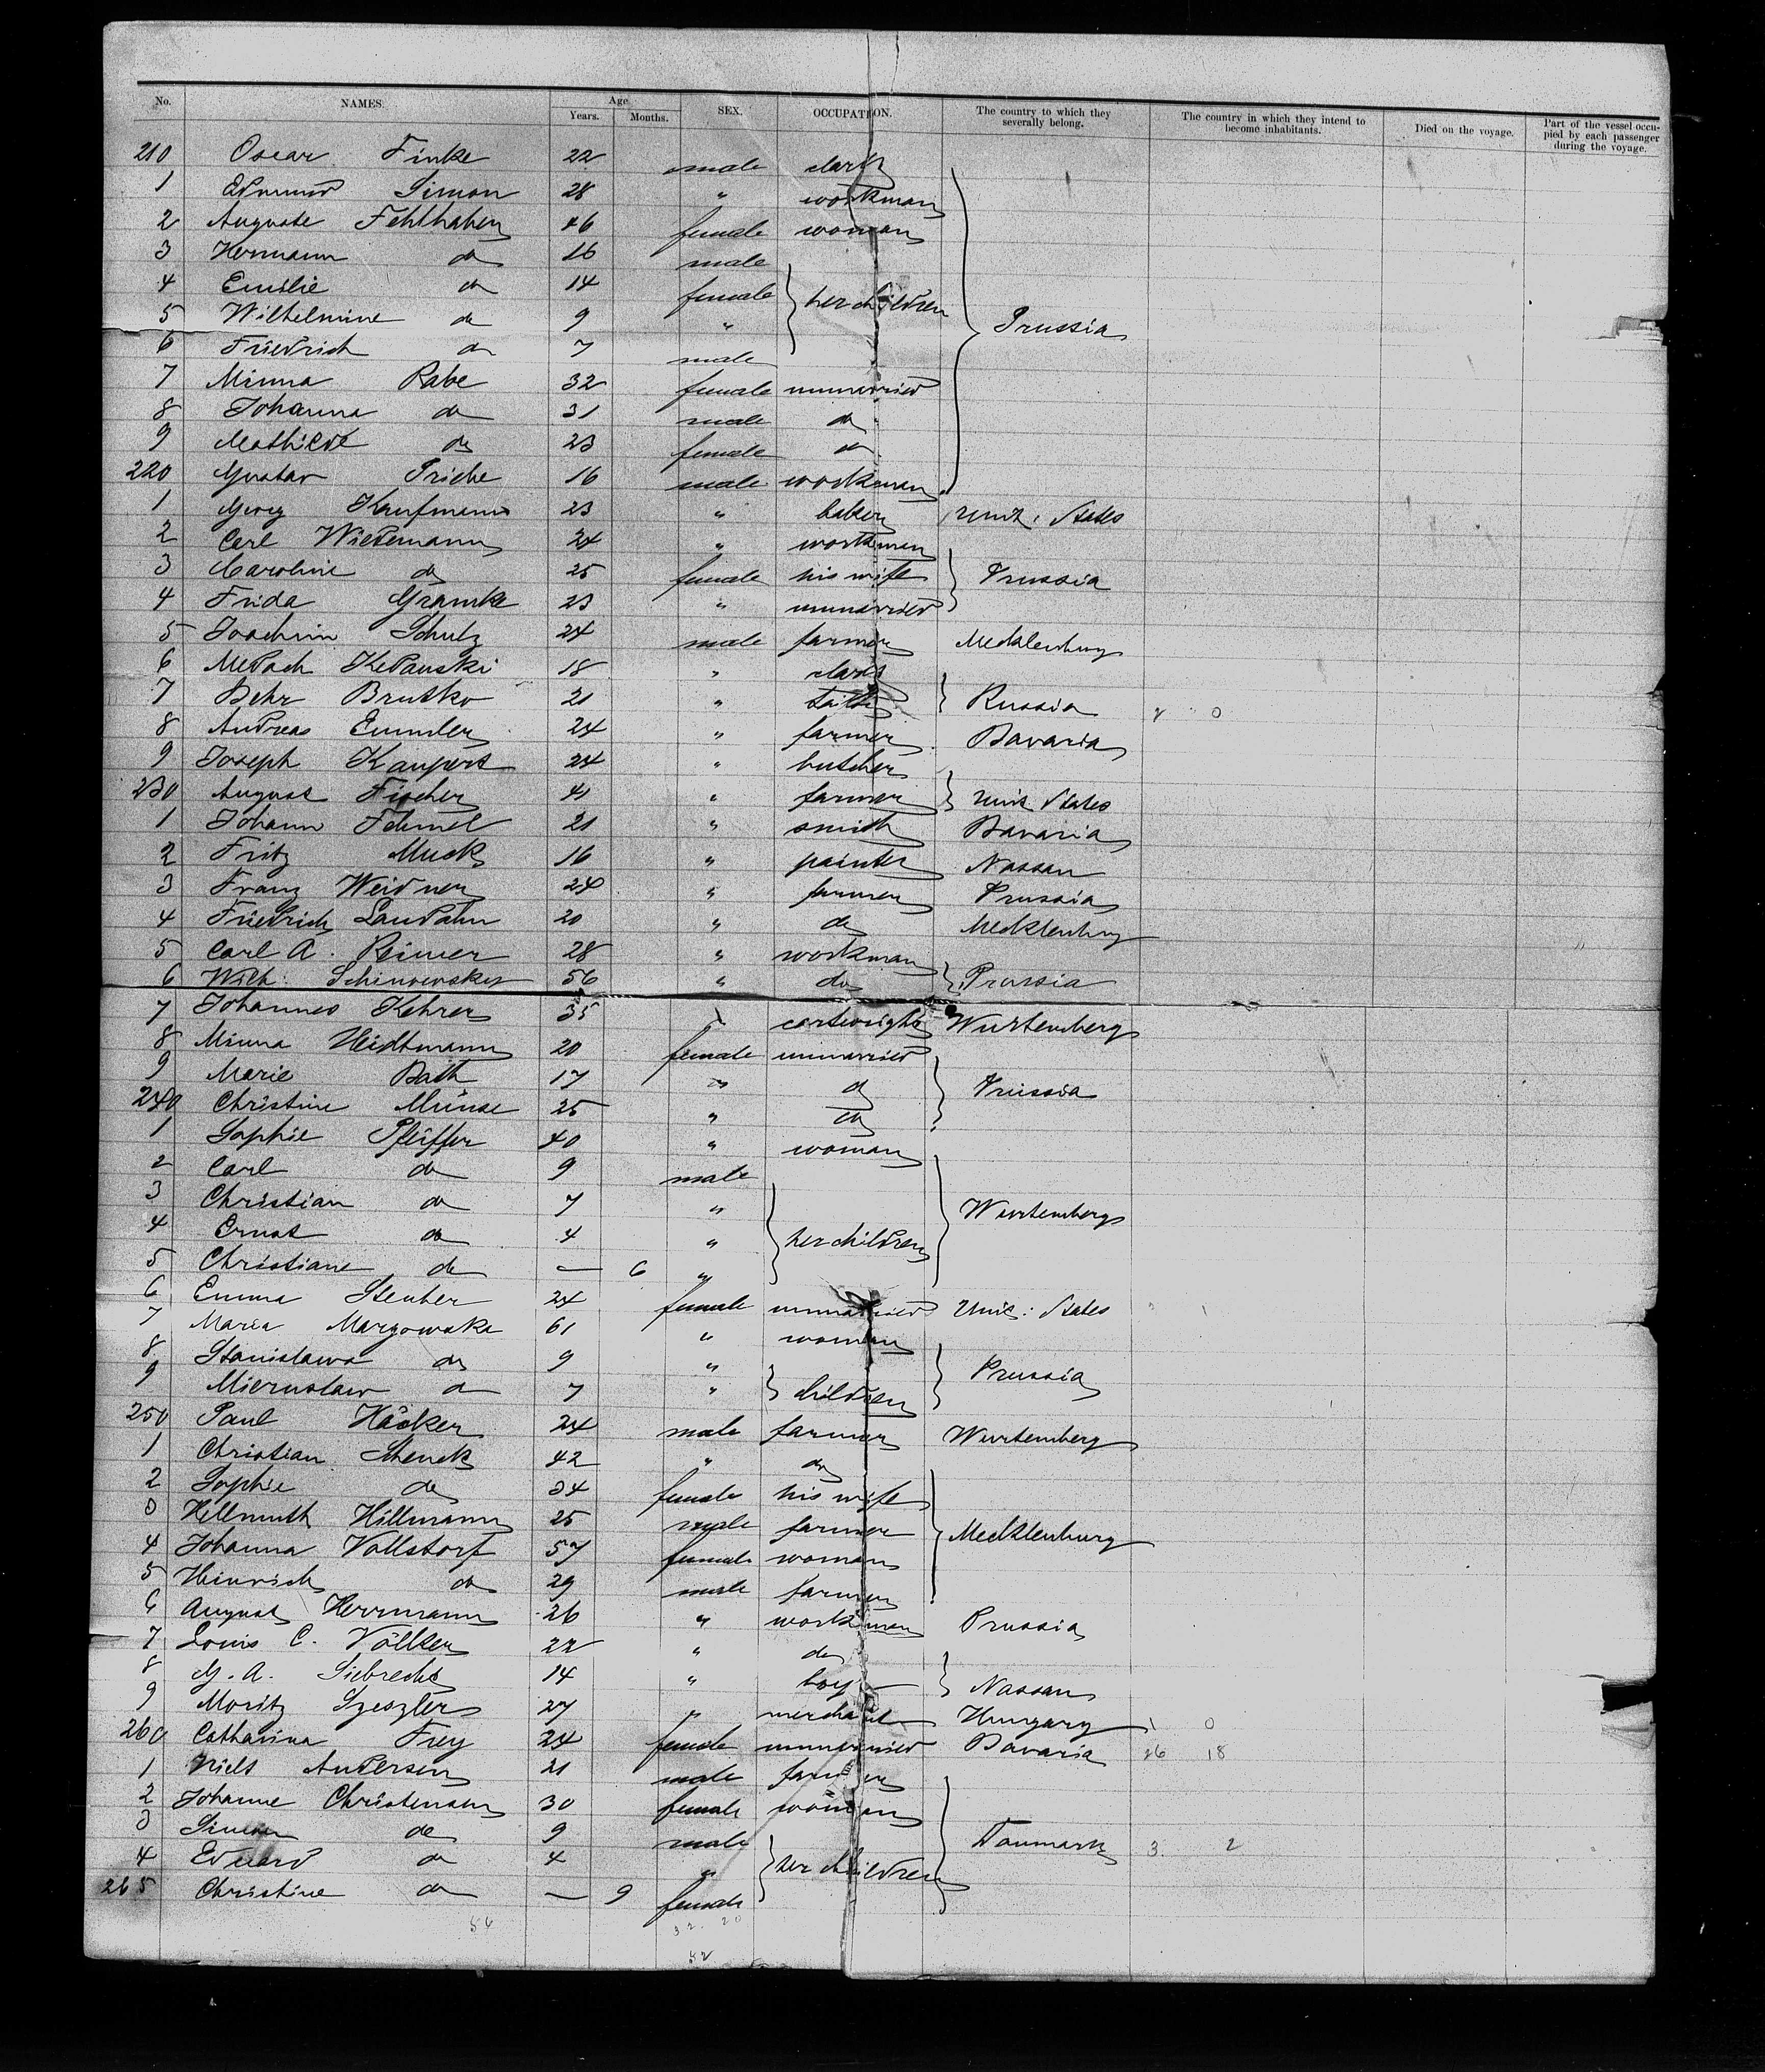 No. NAMES. Age Years. Months. SEX. OCCUPATION. The country to which they severally belong. The country in which they intend to become inhabitants. Died on the voyage. Part of the vessel occupied by each passenger during the voyage.
210 Oscar Finke 22 male clark
1 Edmund Simon 28 " workman
2 Auguste Fehlhaber 46 female woman
3 Hermann do 16 male
4 Emilie do 14 female her children
5 Wilhelmine do 9 " Prussia
6 Friedrich do 7 male
7 Minna Rabe 32 female unmarried
8 Johanna do 31 male do
9 Mathilde do 23 female do
220 Gustav Priebe 16 male workman
1 Georg Kaufmann 23 " baker Unit: States
2 Carl Wiedemann 24 " workman
3 Caroline do 25 female his wife Prussia
4 Frida Gramke 23 " unmarried
5 Joachim Schulz 24 male farmer Mecklenburg
6 Kedanski 18 " clark
7 Behr Brutko 21 " Russia 2 0
8 Andreas 24 " farmer Bavaria
9 Joseph Kaupert 24 " butcher
230 August Fischer 41 " farmer Unit States
1 Johann 21 " smith Bavaria
2 Fritz Muck 16 " painter Nassau
3 Franz Weidner 24 " farmer Prussia
4 Friedrich Laudahn 20 " do Mecklenburg
5 Carl A. Reimer 28 " workman
6 Wilh: 56 " do Prussia
7 Johannes Kehrer 35 " cartwright Wurtemberg
8 Minna Heidtmann 20 female unmarried
9 Marie Bath 17 " do Prussia
240 Christine Münse 25 " do
1 Sophie Pfeiffer 40 " woman
2 Carl do 9 male
3 Christian do 7 " Wurtemberg
4 Ernst do 4 " her children
5 Christiane do — 6 "
6 Emma 24 female unmarried Unit: States
7 Maria Margowska 61 " woman
8 Stanislawa do 9 " Prussia
9 Mieruslaw do 7 " children
250 Paul Häcker 24 male farmer Wurtemberg
1 Christian Schenck 42 " do
2 Sophie do 34 female his wife
3 Hellmuth Hillmann 25 male farmer Mecklenburg
4 Johanna Vollstorf 57 female woman
5 Heinrich do 29 male farmer
6 August Herrmann 26 " workman Prussia
7 Louis C. Völker 22 " do
8 G. A. Siebrecht 14 " boy Nassau
9 Moritz Szeszler 27 " merchant Hungary 1 0
260 Catharina Frey 24 female unmarried Bavaria 26 18
1 Niels Andersen 21 male farmer
2 Johanne Christensen 30 female woman
3 Simon do 9 male Danmark 3. 2
4 Eduard do 4 " her children
265 Christine do — 9 female
54 32. 20
52